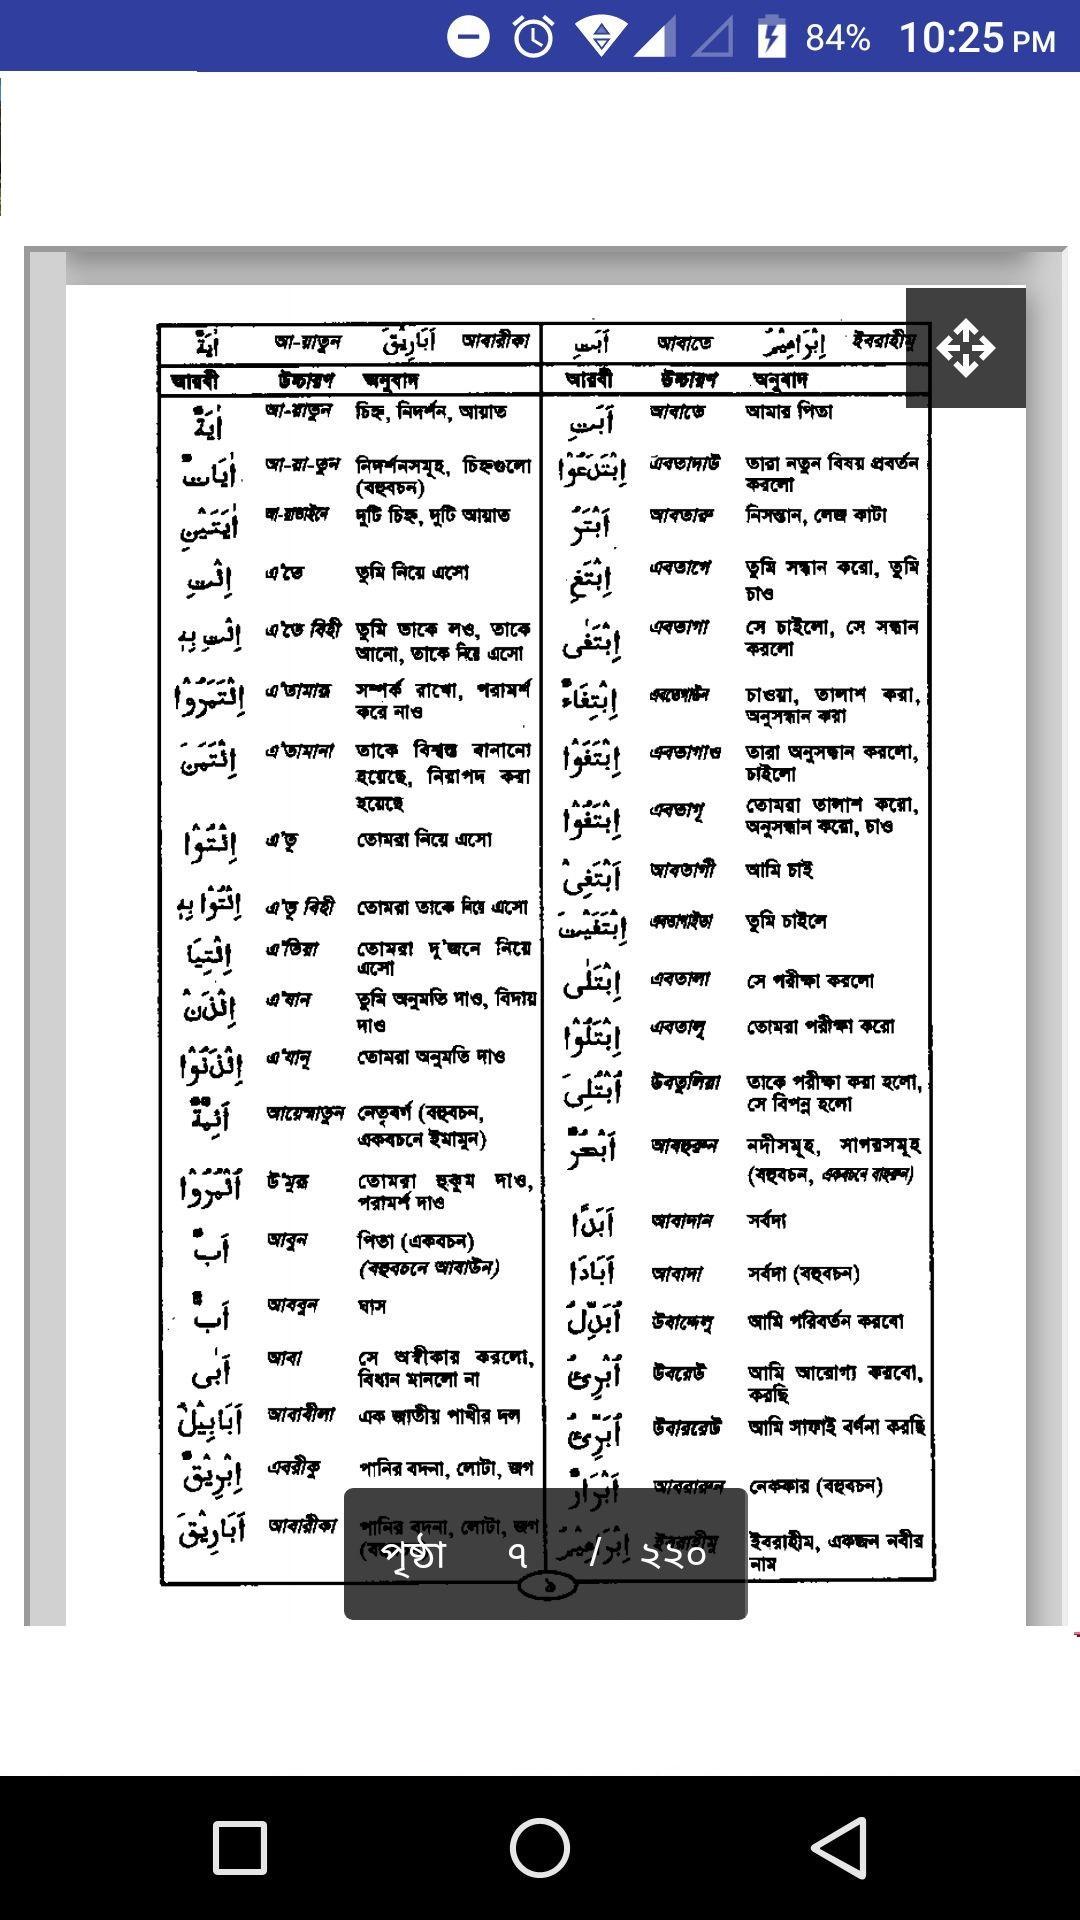 84% 10:25 PM
اٰيَةٌ আ-য়াতুন اَبَارِيْقَ আবারীকা
اَبَتِ আবাতে اِبْرَاهِيْمُ ইবরাহীমু
আরবী উচ্চারণ অনুবাদ
اٰيَةٌ আ-য়াতুন চিহ্ন, নিদর্শন, আয়াত
اٰيَاتٌ আ-য়া-তুন নিদর্শনসমূহ, চিহ্নগুলো
(বহুবচন)
اٰيَتَيْنِ আ-য়াতাইনে দুটি চিহ্ন, দুটি আয়াত
اِئْتِ এ'তে তুমি নিয়ে এসো
اِئْتِ بِهٖ এ'তে বিহী তুমি তাকে লও, তাকে
আনো, তাকে নিয়ে এসো
اِئْتَمِرُوْا এ'তামারু সম্পর্ক রাখো, পরামর্শ
করে নাও
এ'তামানা তাকে বিশ্বস্ত বানানো
হয়েছে, নিরাপদ করা
হয়েছে
اِئْتُوْا এ'তূ তোমরা নিয়ে এসো
اِئْتُوْا بِهٖ এ'তূ বিহী তোমরা তাকে নিয়ে এসো
اِئْتِيَا এ'তিয়া তোমরা দু'জনে নিয়ে
এসো
اِئْذَنْ এ'যান তুমি অনুমতি দাও, বিদায়
দাও
اِئْذَنُوْا এ'যানূ তোমরা অনুমতি দাও
اَئِمَّةٌ আয়েম্মাতুন নেতৃবর্গ (বহুবচন,
একবচনে ইমামুন)
উ'মুরু তোমরা হুকুম দাও,
পরামর্শ দাও
اَبٌ আবুন পিতা (একবচন)
(বহুবচনে আবাউন)
اَبٌّ আববুন ঘাস
اَبٰى আবা সে অস্বীকার করলো,
বিধান মানলো না
اَبَابِيْلَ আবাবীলা এক জাতীয় পাখীর দল
اِبْرِيْقٌ এবরীকু পানির বদনা, লোটা, জগ
اَبَارِيْقَ আবারীকা পানির বদনা, লোটা, জগ
আরবী উচ্চারণ অনুবাদ
اَبَتِ আবাতে আমার পিতা
اِبْتَدَعُوْا এবতাদাউ তারা নতুন বিষয় প্রবর্তন
করলো
اَبْتَرُ আবতারু নিসন্তান, লেজ কাটা
اِبْتَغِ এবতাগে তুমি সন্ধান করো, তুমি
চাও
اِبْتَغٰى এবতাগা সে চাইলো, সে সন্ধান
করলো
اِبْتِغَاءٌ এবতেগাউন চাওয়া, তালাশ করা,
অনুসন্ধান করা
اِبْتَغَوْا এবতাগাও তারা অনুসন্ধান করলো,
চাইলো
اِبْتَغُوْا এবতাগূ তোমরা তালাশ করো,
অনুসন্ধান করো, চাও
اَبْتَغِىْ আবতাগী আমি চাই
اِبْتَغَيْتَ এবতাগাইতা তুমি চাইলে
اِبْتَلٰى এবতালা সে পরীক্ষা করলো
اِبْتَلُوْا এবতালূ তোমরা পরীক্ষা করো
اُبْتُلِىَ উবতুলিয়া তাকে পরীক্ষা করা হলো,
সে বিপন্ন হলো
اَبْحُرٌ আবহুরুন নদীসমূহ, সাগরসমূহ
(বহুবচন, একবচনে বাহরুন)
اَبَدًا আবাদান সর্বদা
اَبَادَا আবাদা সর্বদা (বহুবচন)
اُبَدِّلُ উবাদ্দেলু আমি পরিবর্তন করবো
اُبْرِئُ উবরেউ আমি আরোগ্য করবো,
করছি
اُبَرِّئُ উবাররেউ আমি সাফাই বর্ণনা করছি
اَبْرَارٌ আবরারুন নেককার (বহুবচন)
اِبْرَاهِيْمُ ইবরাহীমু ইবরাহীম, একজন নবীর
নাম
পৃষ্ঠা ৭ / ২২০
১